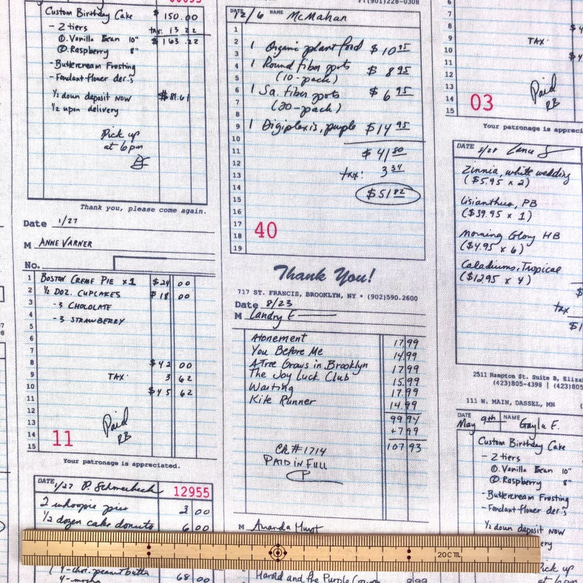 Custom Birthday Cake $150.00
- 2 tiers tax: 13 22
①. Vanilla Bean 10" $163.22
②. Raspberry 8"
- Buttercream Frosting
- Fondant flower der.s
½ down deposit now $81.61
½ upon delivery
Pick up
at 6pm
Thank you, please come again.
12/6 NAME McMahan
1 Organic plant food $10 95
1 Round fiber pots $8 95
(10-pack)
1 Sq. fiber pots $6 95
(20-pack)
1 Digiplexis, purple $14 95
$41 80
tax: 3 34
$51 82
40
TAX
Paid
RB
03
Your patronage is appreciated.
DATE NAME
Zinnia, white wedding
($5.95 x 2)
Lisianthus, PB
($39.95 x 1)
Morning Glory HB
($4.95 x 6)
Caladiums, Tropical
($12.95 x 4)
tax
2511 Hampton St. Suite B, Eliza
(423)805-4398
Date 1/27
M ANNE VARNER
No.
BOSTON CREME PIE x1 $24 00
½ DOZ. CUPCAKES $18 00
-3 CHOLOLATE
-3 STRAWBERRY
$42 00
TAX 3 62
$45 62
Paid
RB
11
Your patronage is appreciated.
Thank You!
717 ST. FRANCIS, BROOKLYN, NY • (902)590.2600
Date 8/23
M Landry E
Atonement 17.99
You Before Me 14.99
A Tree Grows in Brooklyn 17.99
The Joy Luck Club 15.99
Waiting 17.99
Kite Runner 14.99
99 94
+7 99
107 93
Ck#1714
PAID IN FULL
M Amanda Hunt
111 W. MAIN, DASSEL, MN
DATE May 9th NAME Gayla E.
Custom Birthday Cak
- 2 tiers
①. Vanilla Bean 10"
②. Raspberry 8"
- Buttercream Frosting
- Fondant flower der.s
½ down deposit now
½ upon delivery
Pick up
DATE 1/27 P. Schmerbeck 12955
2 whoopie pies 3 00
½ dozen cake donuts 6 00
20CTL
Harold and the Purple
68 00